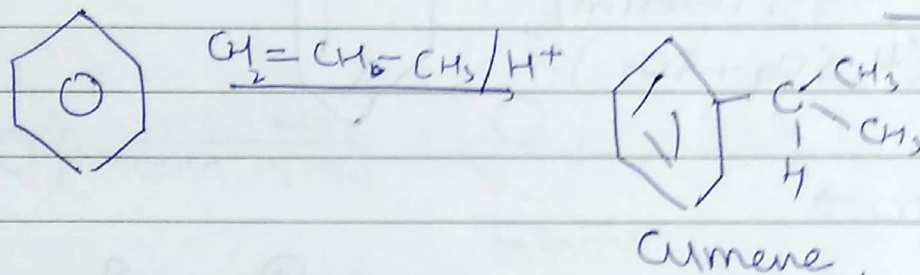 CH2=CH-CH3/H+
C
CH3
CH3
H
Cumene